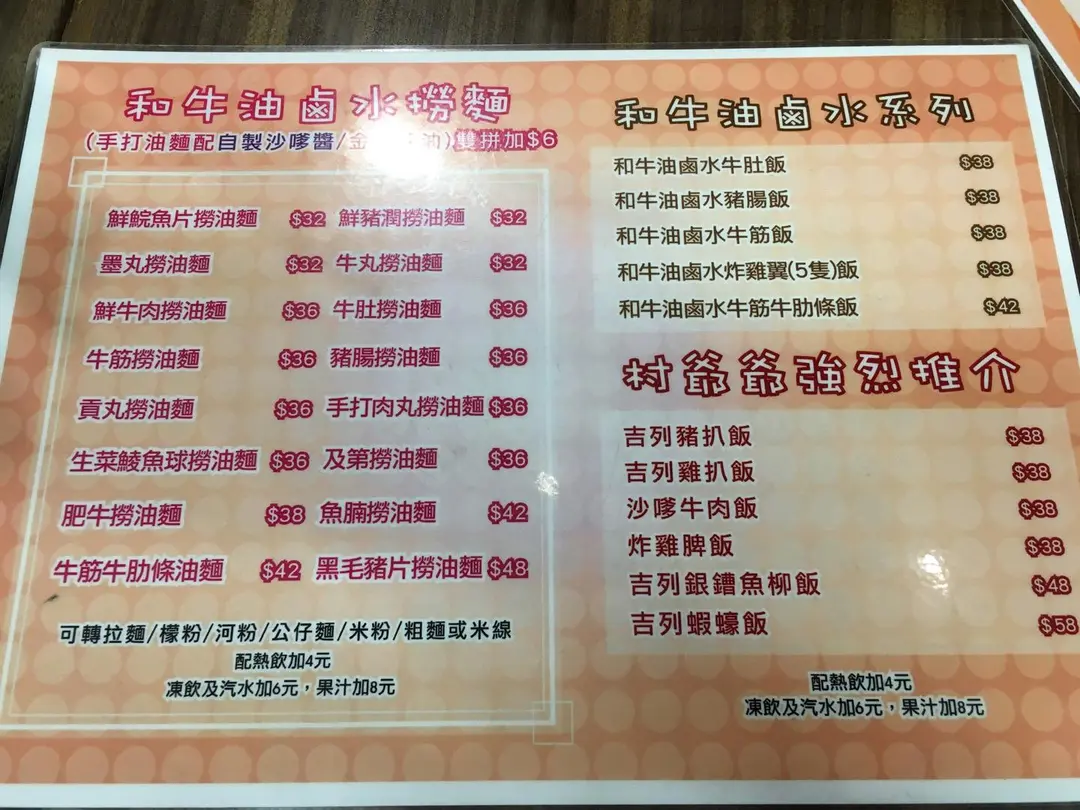 和牛油鹵水撈麵
(手打油麵配自製沙嗲醬/金 油)雙拼加$6
鮮鯇魚片撈油麵 $32 鮮豬潤撈油麵 $32
墨丸撈油麵 $32 牛丸撈油麵 $32
鮮牛肉撈油麵 $36 牛肚撈油麵 $36
牛筋撈油麵 $36 豬腸撈油麵 $36
貢丸撈油麵 $36 手打肉丸撈油麵 $36
生菜鯪魚球撈油麵 $36 及第撈油麵 $36
肥牛撈油麵 $38 魚腩撈油麵 $42
牛筋牛肋條油麵 $42 黑毛豬片撈油麵 $48
可轉拉麵/檬粉/河粉/公仔麵/米粉/粗麵或米線
配熱飲加4元
凍飲及汽水加6元，果汁加8元
和牛油鹵水系列
和牛油鹵水牛肚飯 $38
和牛油鹵水豬腸飯 $38
和牛油鹵水牛筋飯 $38
和牛油鹵水炸雞翼(5隻)飯 $38
和牛油鹵水牛筋牛肋條飯 $42
村爺爺強烈推介
吉列豬扒飯 $38
吉列雞扒飯 $38
沙嗲牛肉飯 $38
炸雞脾飯 $38
吉列銀鱈魚柳飯 $48
吉列蝦蠔飯 $58
配熱飲加4元
凍飲及汽水加6元，果汁加8元